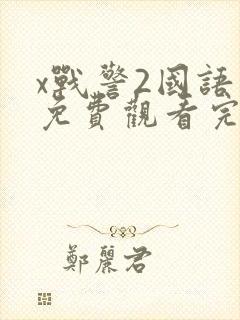 x戰警2國語
免費觀看完
鄭麗君